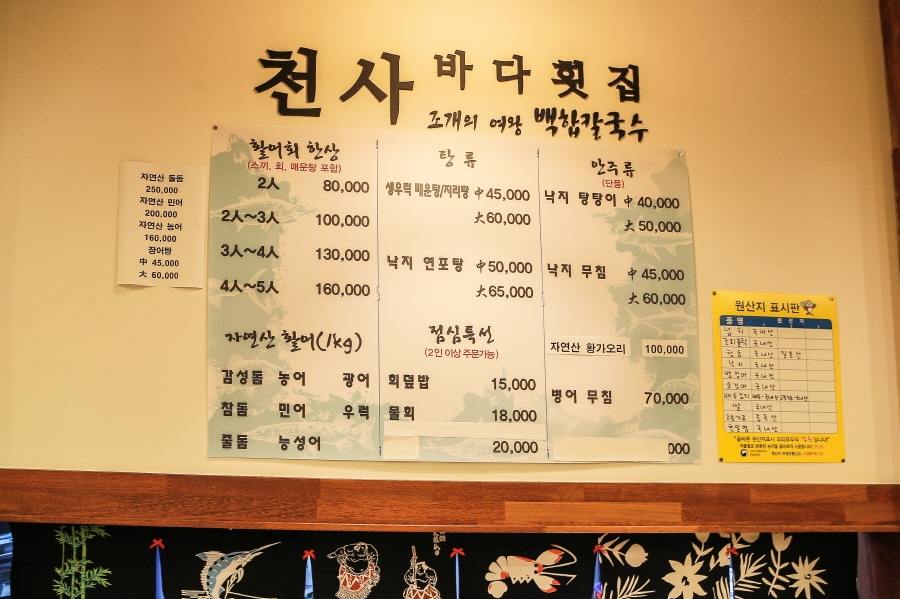 천사 바다횟집
조개의 여왕 백합칼국수
자연산 돌돔
250,000
자연산 민어
200,000
자연산 농어
160,000
장어탕
中 45,000
大 60,000
활어회 한상
(스끼, 회, 매운탕 포함)
2人 80,000
2人~3人 100,000
3人~4人 130,000
4人~5人 160,000
자연산 활어(1kg)
감성돔 농어 광어
참돔 민어 우럭
줄돔 능성어
탕류
생우럭 매운탕/지리탕 中 45,000
大 60,000
낙지 연포탕 中 50,000
大 65,000
점심특선
(2인 이상 주문가능)
회덮밥 15,000
물회 18,000
20,000
안주류
(단품)
낙지 탕탕이 中 40,000
大 50,000
낙지 무침 中 45,000
大 60,000
자연산 황가오리 100,000
병어 무침 70,000
000
원산지 표시판
품명 원산지
낙지 국내산
국내산
국내산 일본산
국내산
국내산
국내산
배추김치
쌀 국내산
고춧가루 중국산
천일염 국내산